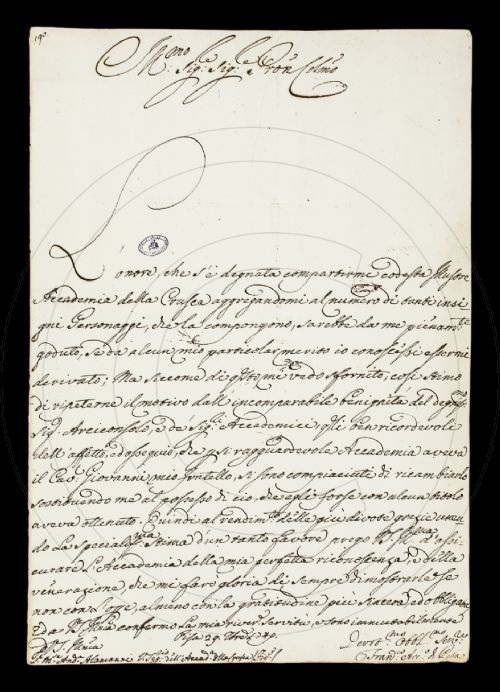 Ill.mo Sig.re Sig.re Pron Colmo
Lonore, che s'è degnata compartirmi codesta Illustre
Accademia della Crusca aggregandomi al numero di tante insi-
gni Personaggi, che la compongono, sarebbe da me pienam.te
goduto, se da alcun mio particolar merito io conoscessi essermi
derivato; Ma siccome di q.sto mi vedo sfornito, così stimo
di ripeterne il motivo dall'incomparabile benignità del degnmo
Sig. Arciconsolo, e de Sig.i Accademici, gli ben ricordevoli
dell'affetto, ed ossequio, che p. si ragguardevole Accademia aveva
il Cav. Giovanni mio fratello, si sono compiaciuti di ricambiarlo
sostituendo me al possesso di ciò, che egli forse con alcun titolo
aveva ottenuto. Quindi al rendim.to delle più divote grazie unen-
do la special stima d'un tanto favore prego V.S. Ill.ma d'assi-
curare l'Accademia della mia perfetta riconoscenza, e della
venerazione, che mi farò gloria di sempre dimostrarle se
non con l'opre, almeno con la gratitudine più sincera, ed obbligante
Ed a V.S. Ill.ma confermo la mia river. servitù, e sono immutabilmente
Di V.S. Ill.ma
Pisa 29.
Devot.mo Obbl.mo Ser.re
S.r M.se And.a Alamanni
Franc.o Arc.o di Pisa